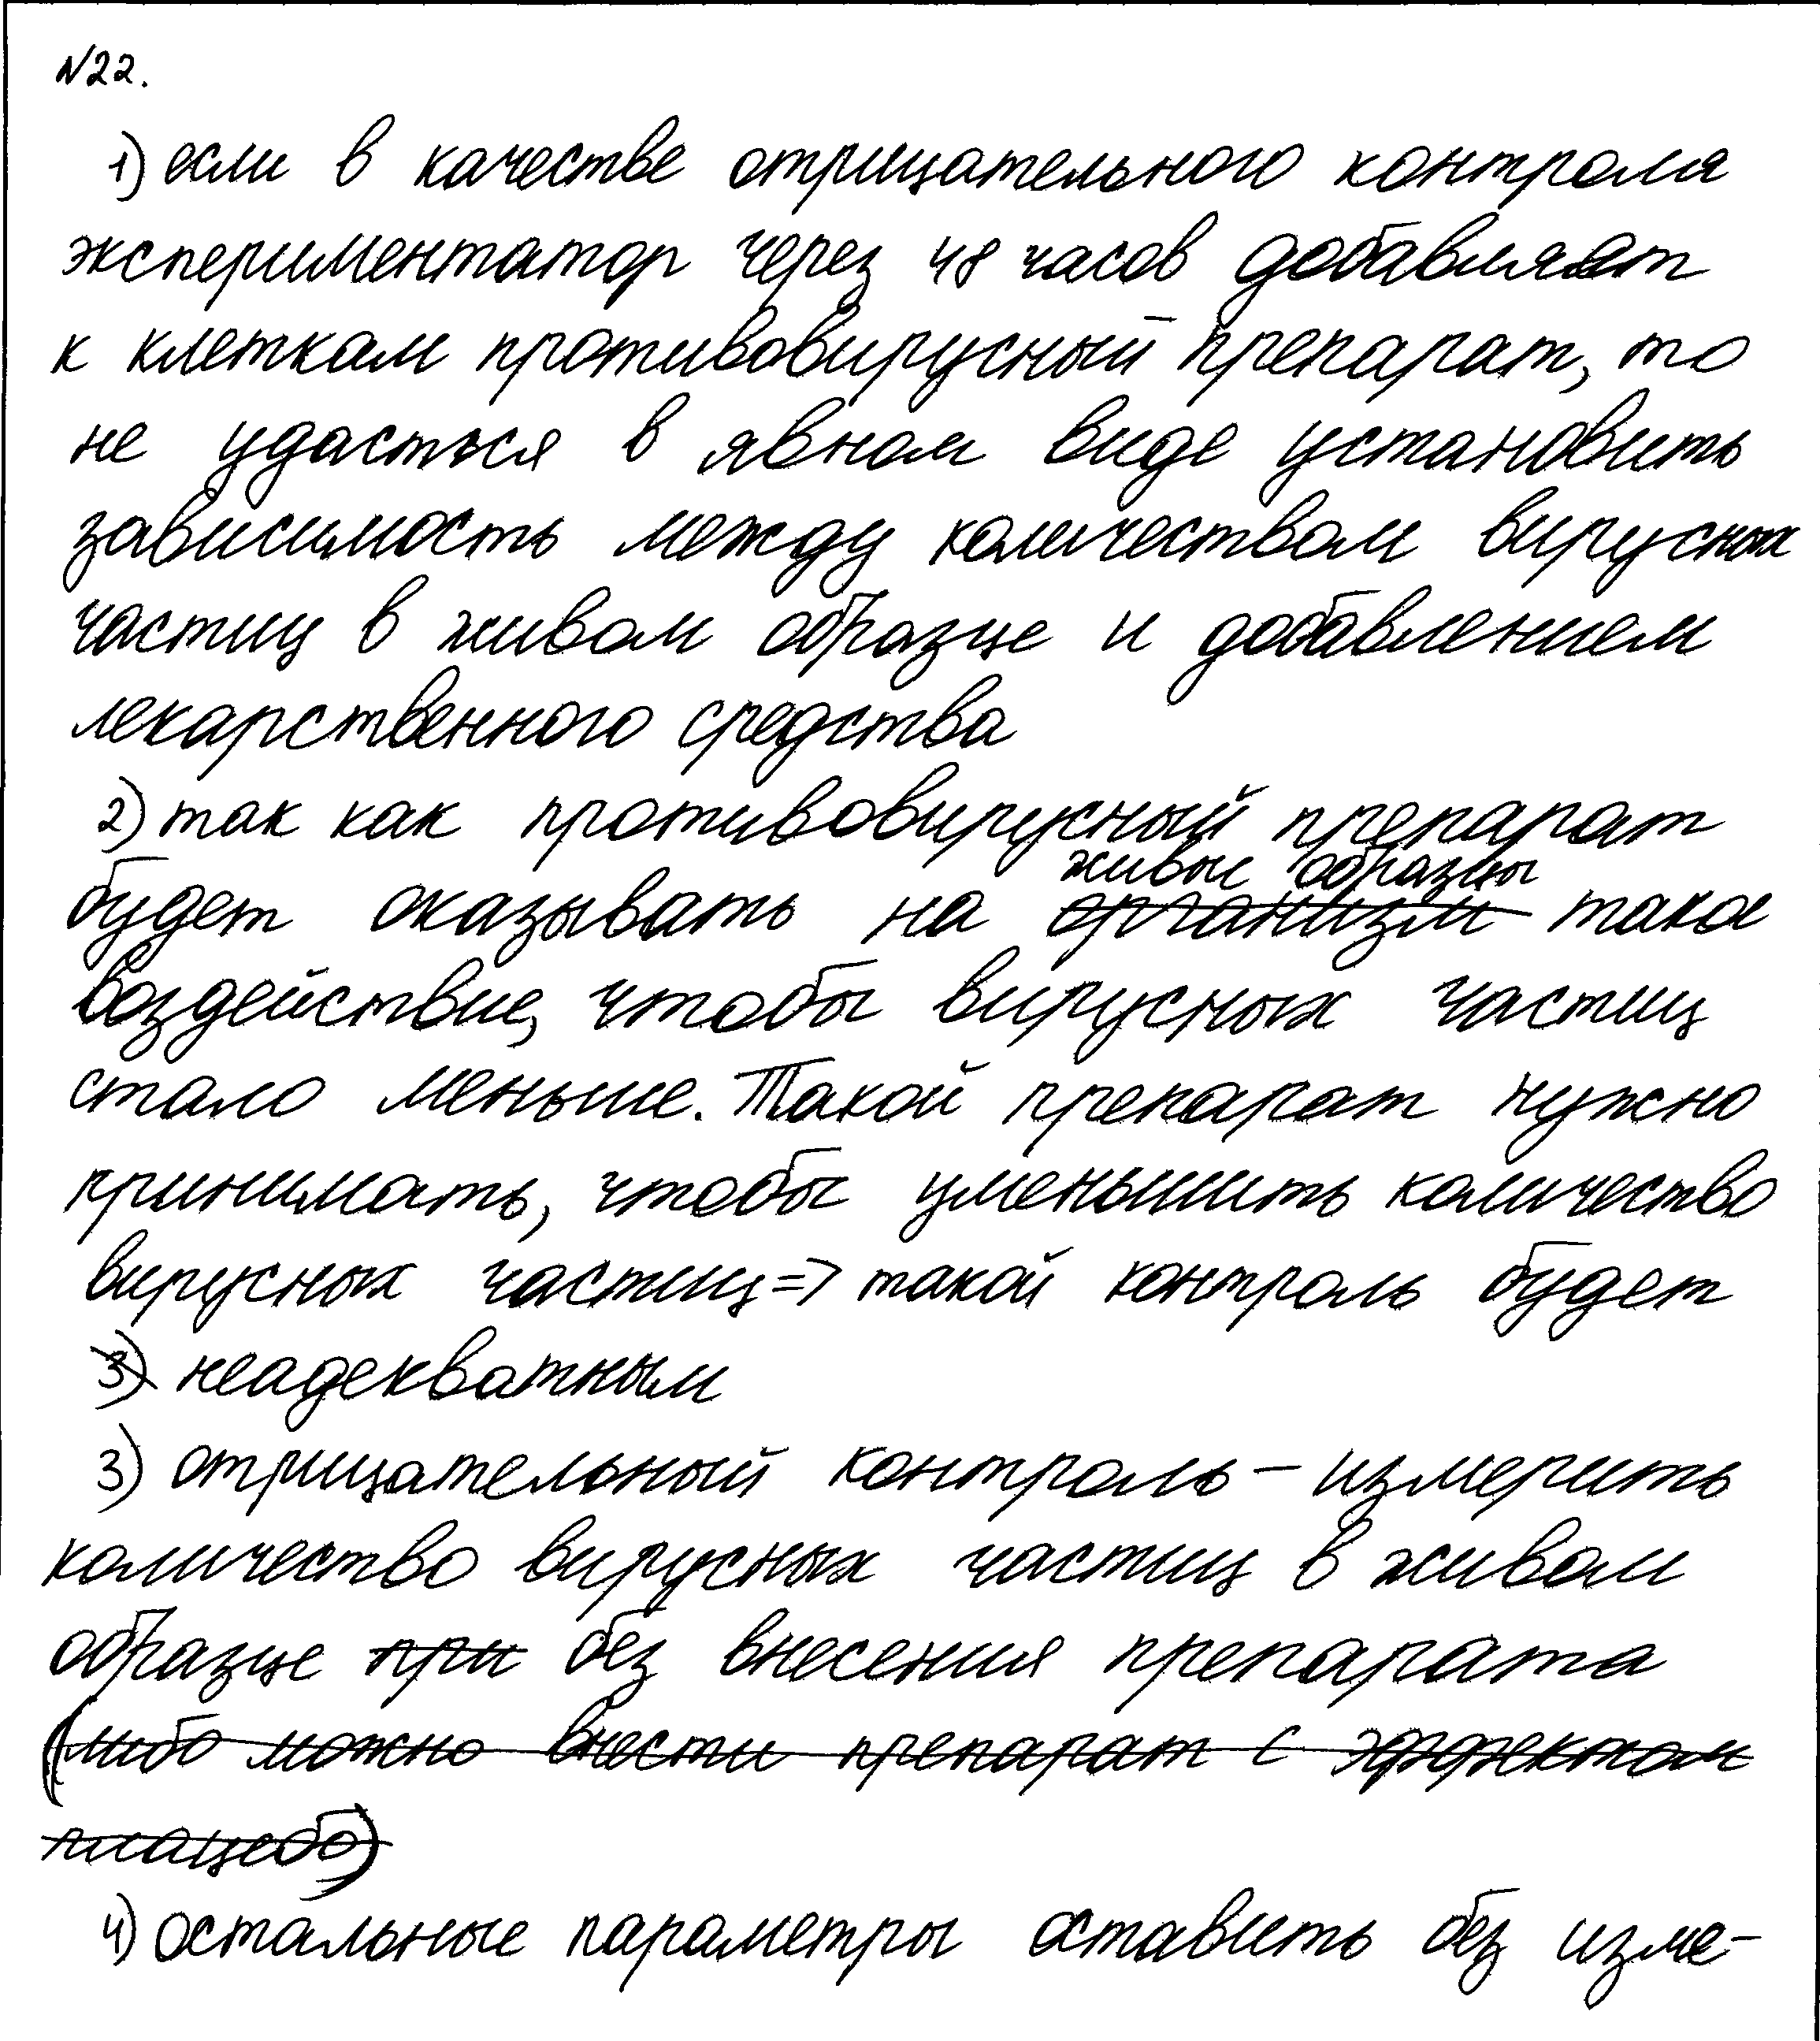 №22.
1) если в качестве отрицательного контроля
экспериментатор через 48 часов добавляет
к клеткам противовирусный препарат, то
не удасться в явном виде установить
зависимость между количеством вирусных
частиц в живом образце и добавлением
лекарственного средства
2) так как противовирусный препарат
живые образцы
будет оказывать на организм такое
воздействие, чтобы вирусных частиц
стало меньше. Такой препарат нужно
принимать, чтобы уменьшить количество
вирусных частиц => такой контроль будет
3) неадекватным
3) отрицательный контроль - измерить
количество вирусных частиц в живом
образце при без внесения препарата
(либо можно внести препарат с эффектом
плацебо)
4) остальные параметры оставить без изме-